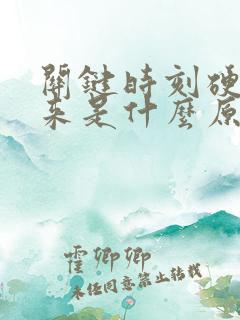 關鍵時刻硬
來是什麼原
霍卿卿
未任同意禁止转载